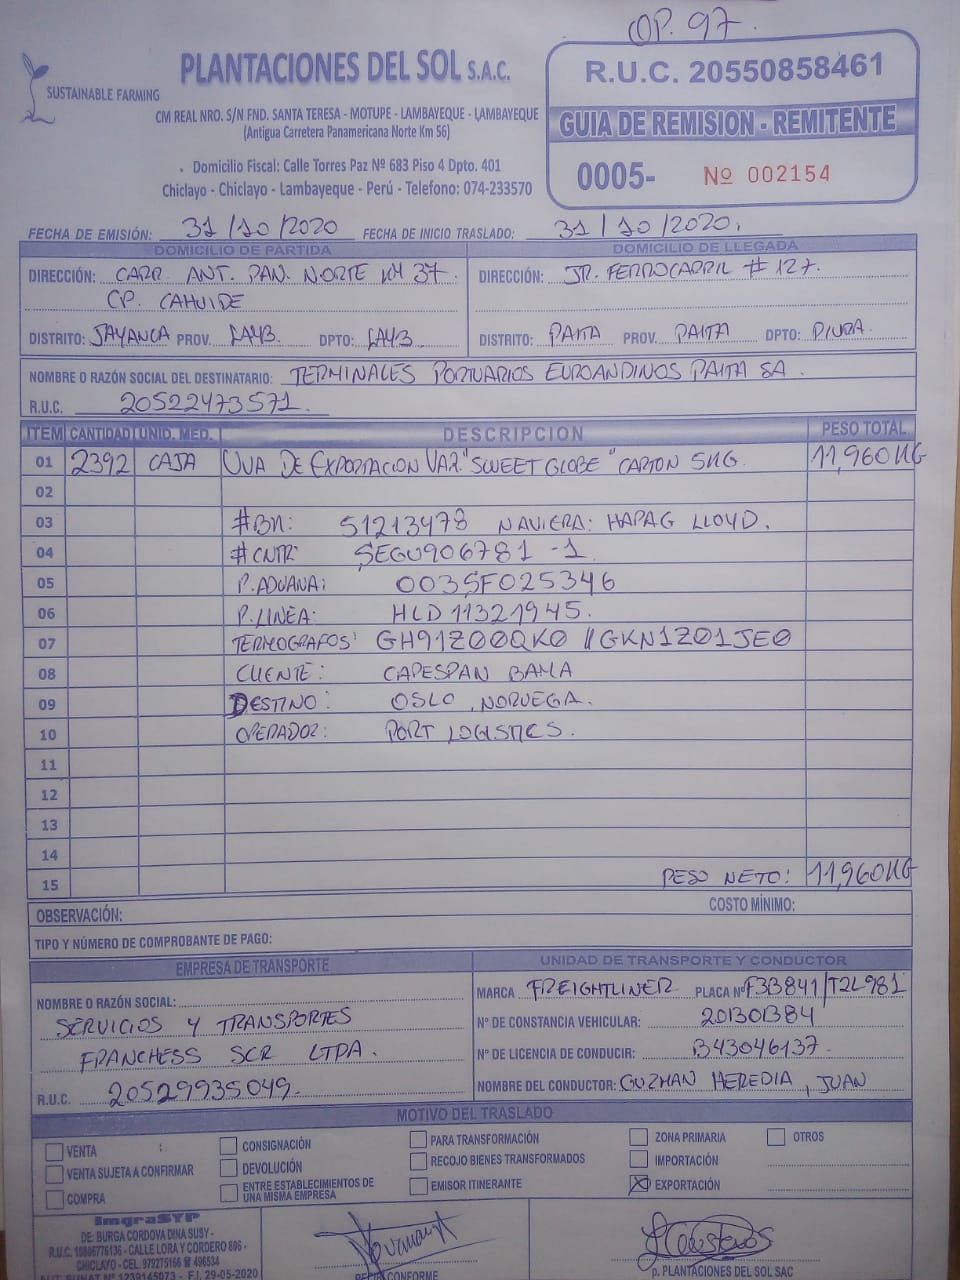 OP. 97.
SUSTAINABLE FARMING
PLANTACIONES DEL SOL S.A.C.
CM REAL NRO. S/N FND. SANTA TERESA - MOTUPE - LAMBAYEQUE - LAMBAYEQUE
(Antigua Carretera Panamericana Norte Km 56)
Domicilio Fiscal: Calle Torres Paz Nº 683 Piso 4 Dpto. 401
Chiclayo - Chiclayo - Lambayeque - Perú - Telefono: 074-233570
R.U.C. 20550858461
GUIA DE REMISION - REMITENTE
0005- Nº 002154
FECHA DE EMISIÓN: 31/10/2020 FECHA DE INICIO TRASLADO: 31/10/2020.
DOMICILIO DE PARTIDA DOMICILIO DE LLEGADA
DIRECCIÓN: CARR. ANT. PAN. NORTE KM 37. DIRECCIÓN: JR. FERROCARRIL # 127.
CP. CAHUIDE
DISTRITO: JAYANCA PROV. LAMB. DPTO: LAMB. DISTRITO: PAITA PROV. PAITA DPTO: PIURA.
NOMBRE O RAZÓN SOCIAL DEL DESTINATARIO: TERMINALES PORTUARIOS EUROANDINOS PAITA SA.
R.U.C. 20522473571.
ITEM CANTIDAD UNID. MED. DESCRIPCION PESO TOTAL
01 2392 CAJA UVA DE EXPORTACION VAR. "SWEET GLOBE" CARTON 5KG. 11,960KG
02
03 #BK: 51213478 NAVIERA: HAPAG LLOYD.
04 #CNTR: SEGU906781-1
05 P.ADUANA: 0035F025346
06 P.LINEA: HLD11321945.
07 TERMOGRAFOS: GH91Z00QK0 // GKN1Z01JE0
08 CLIENTE: CAPESPAN BAMA
09 DESTINO: OSLO, NORUEGA.
10 OPERADOR: PORT LOGISTICS.
11
12
13
14
15 PESO NETO: 11,960KG
OBSERVACIÓN: COSTO MÍNIMO:
TIPO Y NÚMERO DE COMPROBANTE DE PAGO:
EMPRESA DE TRANSPORTE UNIDAD DE TRANSPORTE Y CONDUCTOR
NOMBRE O RAZÓN SOCIAL: MARCA FREIGHTLINER PLACA Nº F3B841/T2L981
SERVICIOS Y TRANSPORTES Nº DE CONSTANCIA VEHICULAR:
FRANCHESS SCR LTDA. Nº DE LICENCIA DE CONDUCIR: B43046137.
R.U.C. 20529935049. NOMBRE DEL CONDUCTOR: GUZMAN HEREDIA, JUAN
MOTIVO DEL TRASLADO
VENTA CONSIGNACIÓN PARA TRANSFORMACIÓN ZONA PRIMARIA OTROS
VENTA SUJETA A CONFIRMAR DEVOLUCIÓN RECOJO BIENES TRANSFORMADOS IMPORTACIÓN
COMPRA ENTRE ESTABLECIMIENTOS DE UNA MISMA EMPRESA EMISOR ITINERANTE EXPORTACIÓN
ImgraSYP
DE: BURGA CORDOVA DINA SUSY -
R.U.C. 10806776136 - CALLE LORA Y CORDERO 806 -
CHICLAYO - CEL. 979275166 ☎ 496534
AUT. SUNAT Nº 1239145073 - F.I. 29-05-2020
RECIBI CONFORME
p. PLANTACIONES DEL SOL SAC